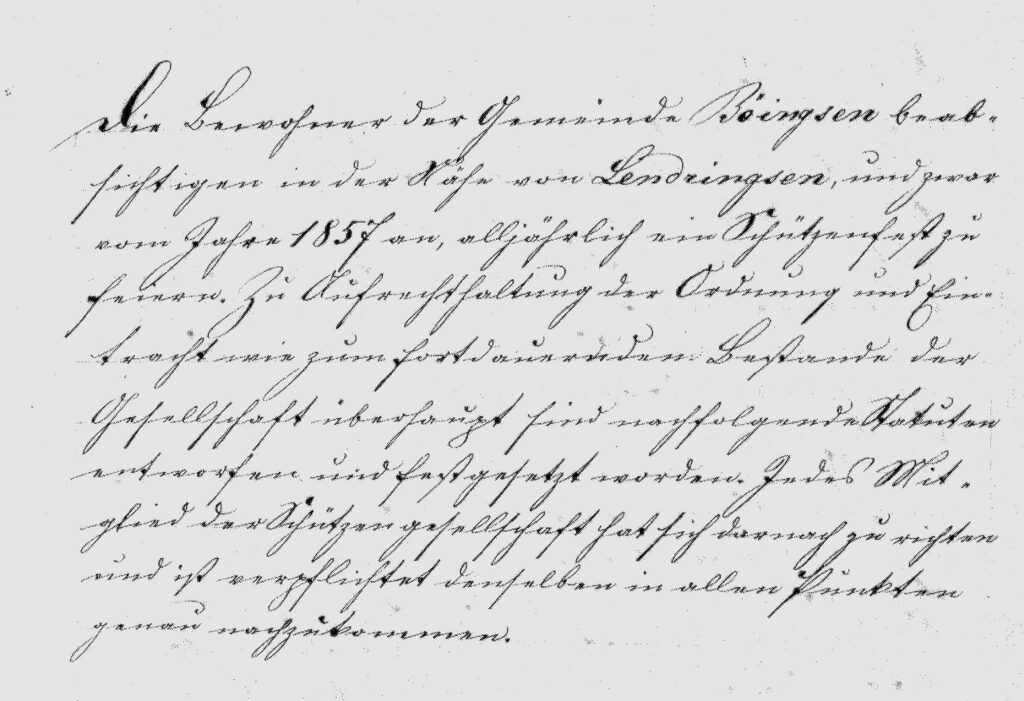 Die Bewohner der Gemeinde Böingsen beab-
sichtigen in der Nähe von Lendringsen, und zwar
vom Jahre 1857 an, alljährlich ein Schützenfest zu
feiern. Zu Aufrechthaltung der Ordnung und Ein-
tracht wie zum fortdauernden Bestande der
Gesellschaft überhaupt sind nachfolgende Statuten
entworfen und festgesetzt worden. Jedes Mit-
glied der Schützengesellschaft hat sich darnach zu richten
und ist verpflichtet denselben in allen Punkten
genau nachzukommen.